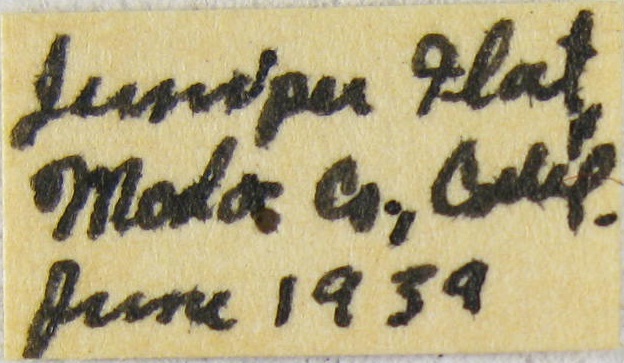 Juniper Flat,
Modoc Co., Calif.
June 1939